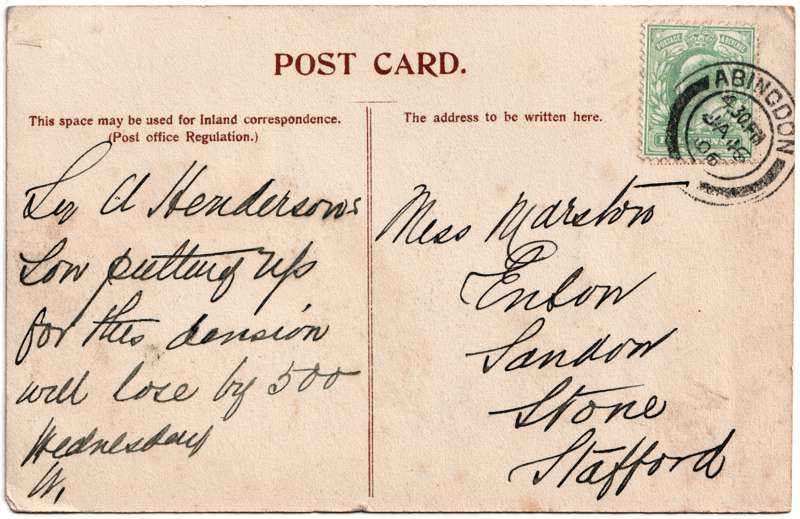 POST CARD.
This space may be used for Inland correspondence.
(Post office Regulation.)
The address to be written here.
POSTAGE & REVENUE
ABINGDON
4.30PM
JA 16
06
Sir A Henderson's
Son putting up
for this division
will lose by 500
Wednesday
W.
Miss Marston
Enson
Sandon
Stone
Stafford